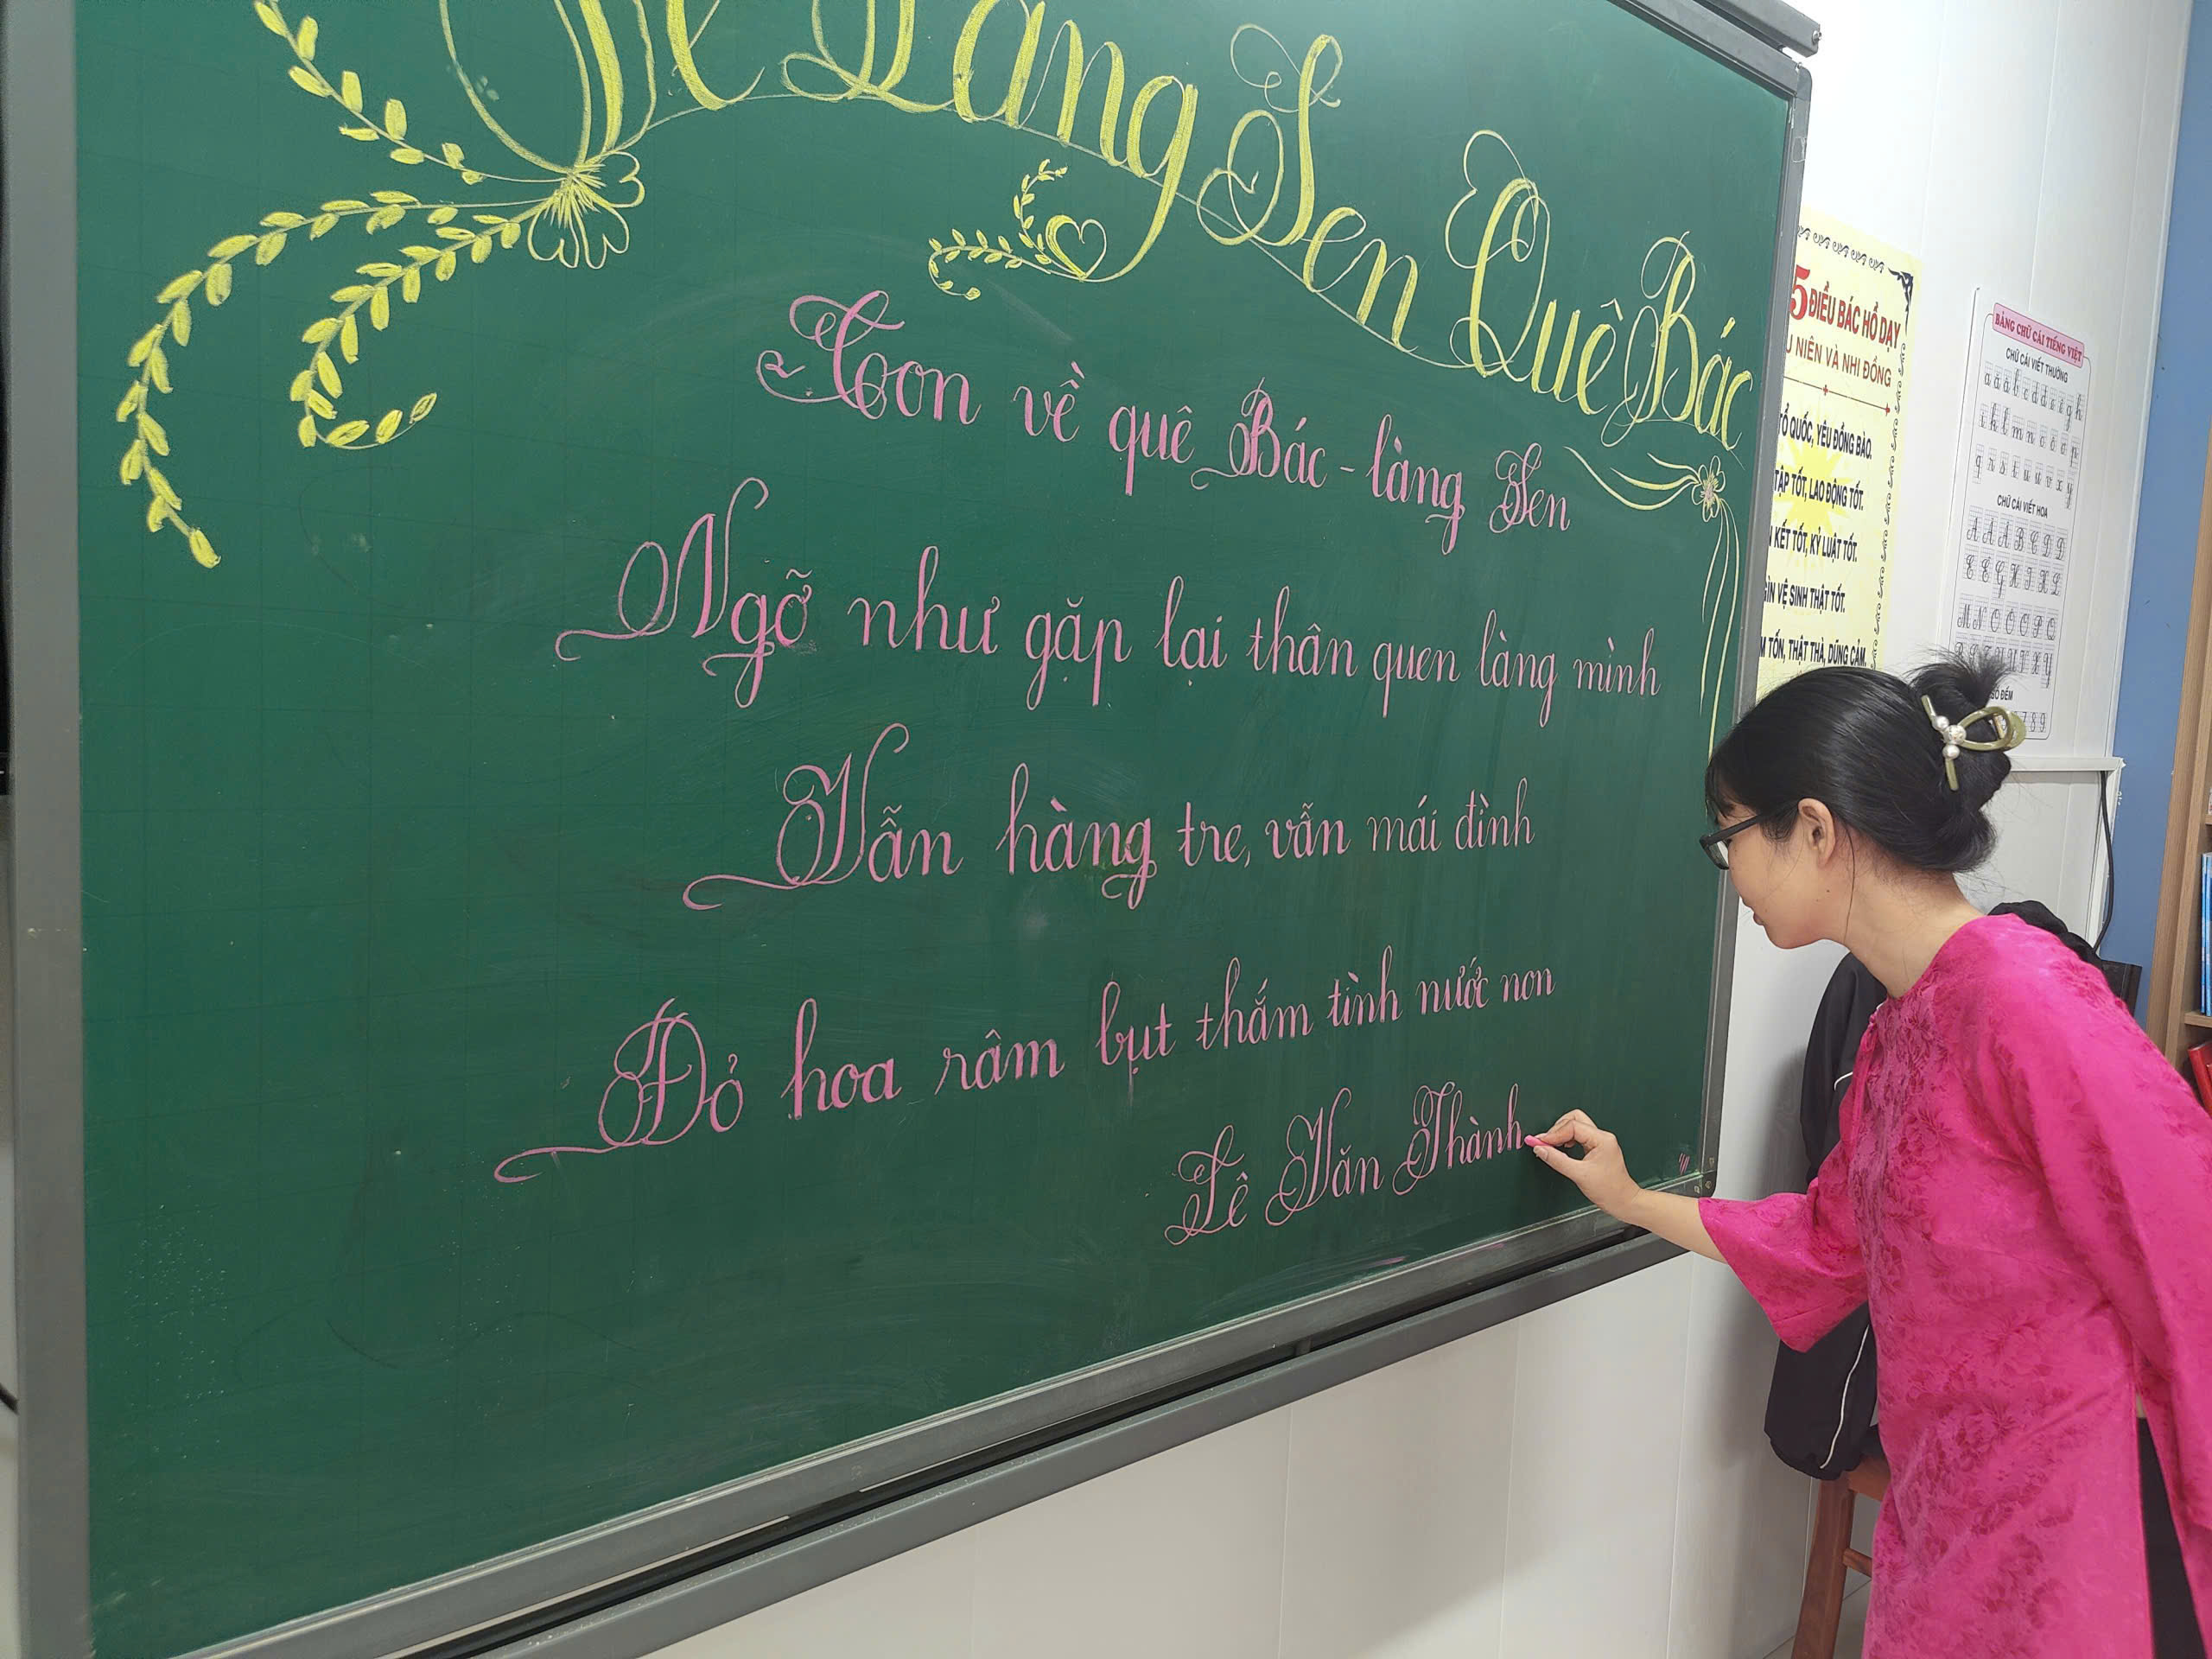 Về Làng Sen Quê Bác
Con về quê Bác - làng Sen
Ngỡ như gặp lại thân quen làng mình
Vẫn hàng tre, vẫn mái đình
Đỏ hoa râm bụt thắm tình nước non
Lê Văn Thành
5 ĐIỀU BÁC HỒ DẠY
NIÊN VÀ NHI ĐỒNG
TỔ QUỐC, YÊU ĐỒNG BÀO.
TẬP TỐT, LAO ĐỘNG TỐT.
KẾT TỐT, KỶ LUẬT TỐT.
VỆ SINH THẬT TỐT.
TỐN, THẬT THÀ, DŨNG CẢM.
BẢNG CHỮ CÁI TIẾNG VIỆT
CHỮ CÁI VIẾT THƯỜNG
a ă â b c d đ e ê g h
i k l m n o ô ơ p
q r s t u ư v x y
CHỮ CÁI VIẾT HOA
A Ă Â B C D Đ
E Ê G H I K L
M N O Ô Ơ P Q
ĐẾM
7 8 9